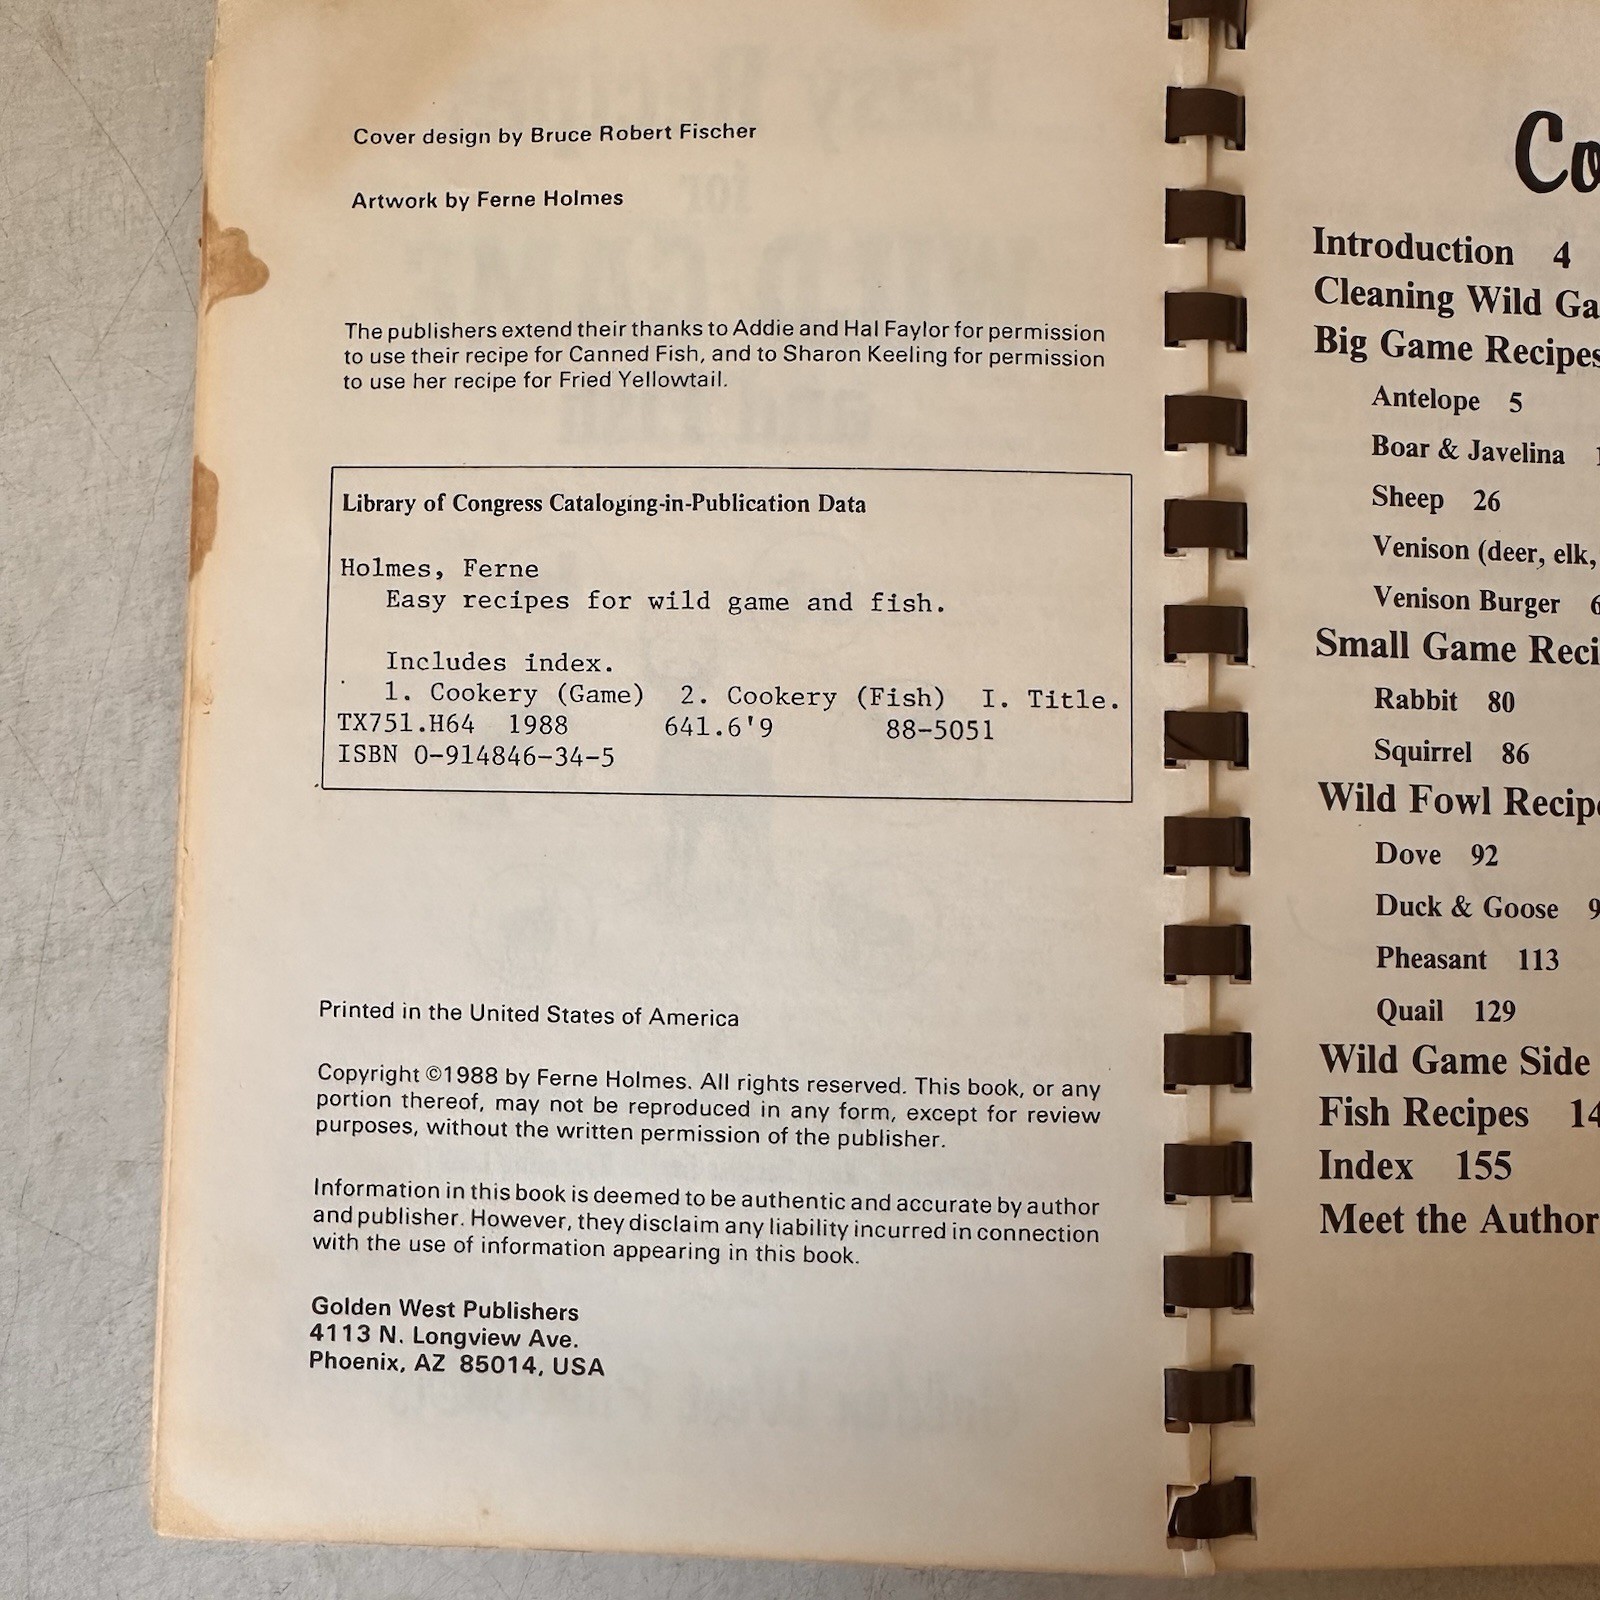 Cover design by Bruce Robert Fischer
Artwork by Ferne Holmes
The publishers extend their thanks to Addie and Hal Faylor for permission
to use their recipe for Canned Fish, and to Sharon Keeling for permission
to use her recipe for Fried Yellowtail.
Library of Congress Cataloging-in-Publication Data
Holmes, Ferne
Easy recipes for wild game and fish.
Includes index.
1. Cookery (Game) 2. Cookery (Fish) I. Title.
TX751.H64 1988 641.6'9 88-5051
ISBN 0-914846-34-5
Printed in the United States of America
Copyright ©1988 by Ferne Holmes. All rights reserved. This book, or any
portion thereof, may not be reproduced in any form, except for review
purposes, without the written permission of the publisher.
Information in this book is deemed to be authentic and accurate by author
and publisher. However, they disclaim any liability incurred in connection
with the use of information appearing in this book.
Golden West Publishers
4113 N. Longview Ave.
Phoenix, AZ 85014, USA
Co
Introduction 4
Cleaning Wild Ga
Big Game Recipes
Antelope 5
Boar & Javelina 1
Sheep 26
Venison (deer, elk,
Venison Burger 6
Small Game Reci
Rabbit 80
Squirrel 86
Wild Fowl Recip
Dove 92
Duck & Goose 9
Pheasant 113
Quail 129
Wild Game Side
Fish Recipes 14
Index 155
Meet the Author